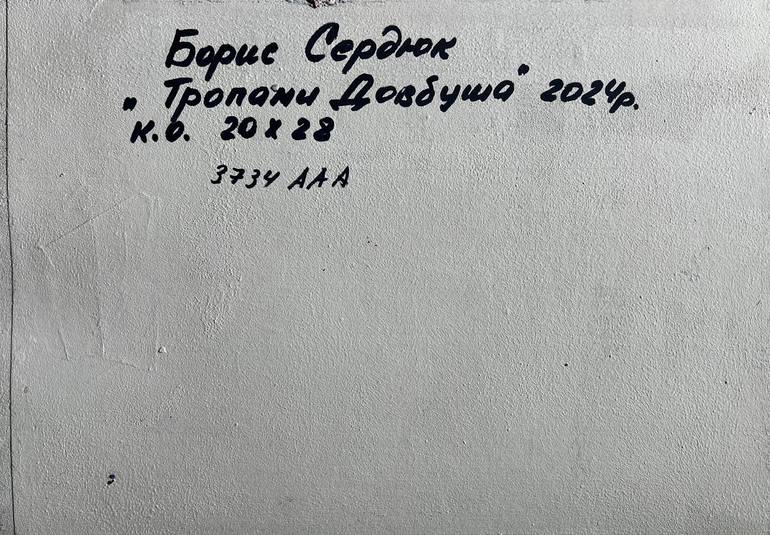 Борис Сердюк
„Тропами Довбуша" 2024р.
к.о. 20 х 28
3734 ААА